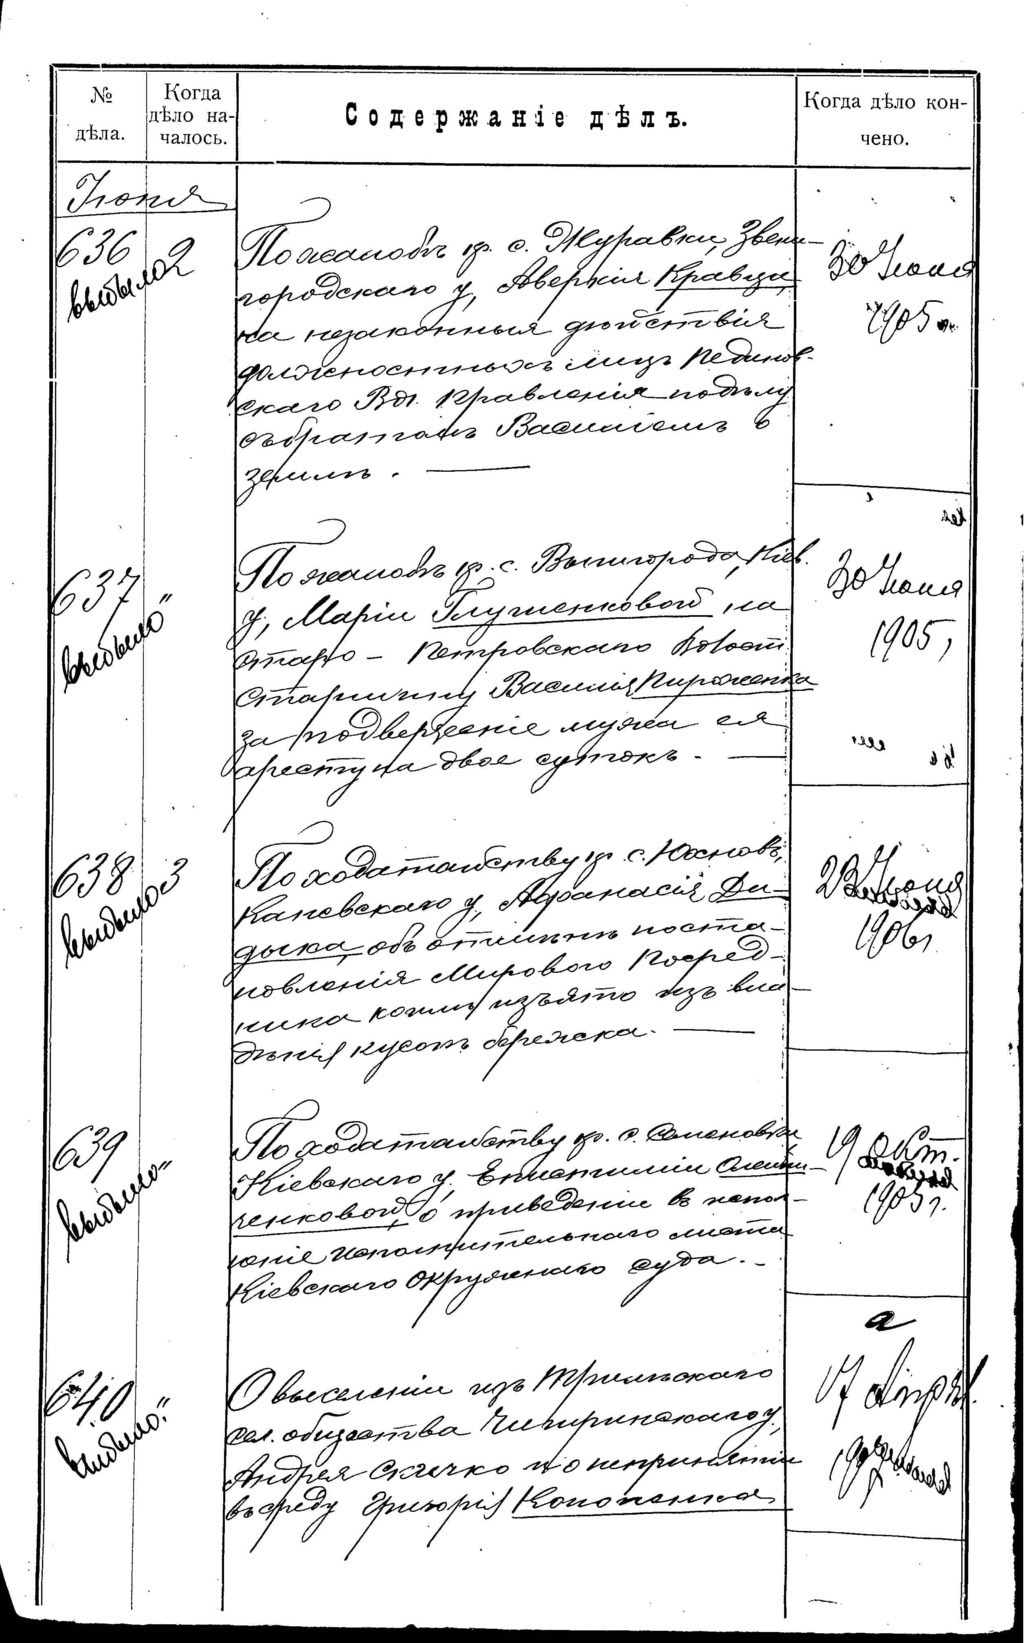 №
дѣла.
Когда
дѣло на-
чалось.
Содержаніе дѣлъ.
Когда дѣло кон-
чено.
Іюня
636
выбыло
2
По жалобѣ кр. с. Журавки, Звени-
городскаго у, Аверкія Кравца,
на незаконныя дѣйствія
должностныхъ лицъ
скаго Вол. Правленія по дѣлу
съ братомъ Василіемъ о
землѣ.
30 Іюня
1905 г.
637 "
выбыло
По жалобѣ кр. с. Вышгорода, Кіев.
у, Маріи Глущенковой на
Старо-Петровскаго Волост.
Старшину Василія Пироженка
за подверженіе мужа ея
аресту на двое сутокъ.
30 Іюня
1905,
638
выбыло
3
По ходатайству кр. с. Юхновъ,
Каневскаго у, Афанасія Ди-
дыка, объ отмѣнѣ поста-
новленія Мирового Посред-
ника коимъ изъято изъ вла-
дѣнія кусокъ бережка.
23 Іюня
1906 г.
639
выбыло "
По ходатайству кр. с. Семеновки
Кіевскаго у. Епистиміи
о приведеніи въ испол-
неніе исполнительнаго листа
Кіевскаго Окружнаго суда.
19 Окт.
1905 г.
640 "
выбыло.
О выселеніи изъ
сел. общества Чигиринскаго у,
Андрея и о непринятіи
въ среду Григорія Кононенка
17 Апрѣл.